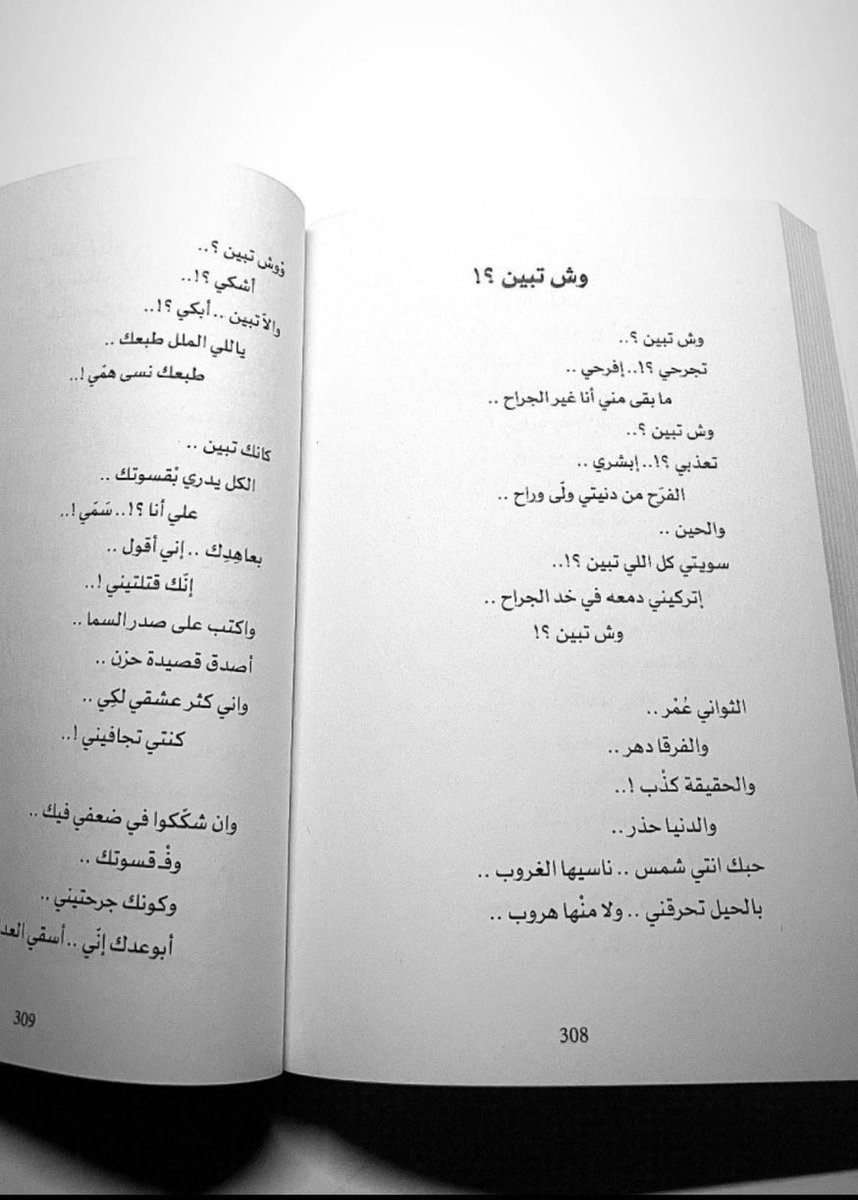 وش تبين ؟!
وش تبين ؟..
تجرحي ؟!.. إفرحي ..
ما بقى مني أنا غير الجراح ..
وش تبين ؟..
تعذبي ؟!.. إبشري ..
الفرَح من دنيتي ولّى وراح ..
والحين ..
سويتي كل اللي تبين ؟!..
إتركيني دمعه في خد الجراح ..
وش تبين ؟!
الثواني عُمْر ..
والفرقا دهر ..
والحقيقة كذْب !..
والدنيا حذر ..
حبك انتي شمس .. ناسيها الغروب ..
بالحيل تحرقني .. ولا منْها هروب ..
308
وْوش تبين ؟..
أشكي ؟!..
والاّ تبين .. أبكي ؟!..
ياللي الملل طبعك ..
طبعك نسى همّي !..
كانك تبين ..
الكل يدري بْقسوتك ..
علي أنا ؟!.. سَمّي !..
بعاهِدِك .. إني أقول ..
إنّك قتلتيني !..
واكتب على صدر السما ..
أصدق قصيدة حزن ..
واني كثر عشقي لكِي ..
كنتي تجافيني !..
وان شكّكوا في ضعفي فيك ..
وفْـ قسوتك ..
وكونك جرحتيني ..
أبوعدك إنّي .. أسقي
309